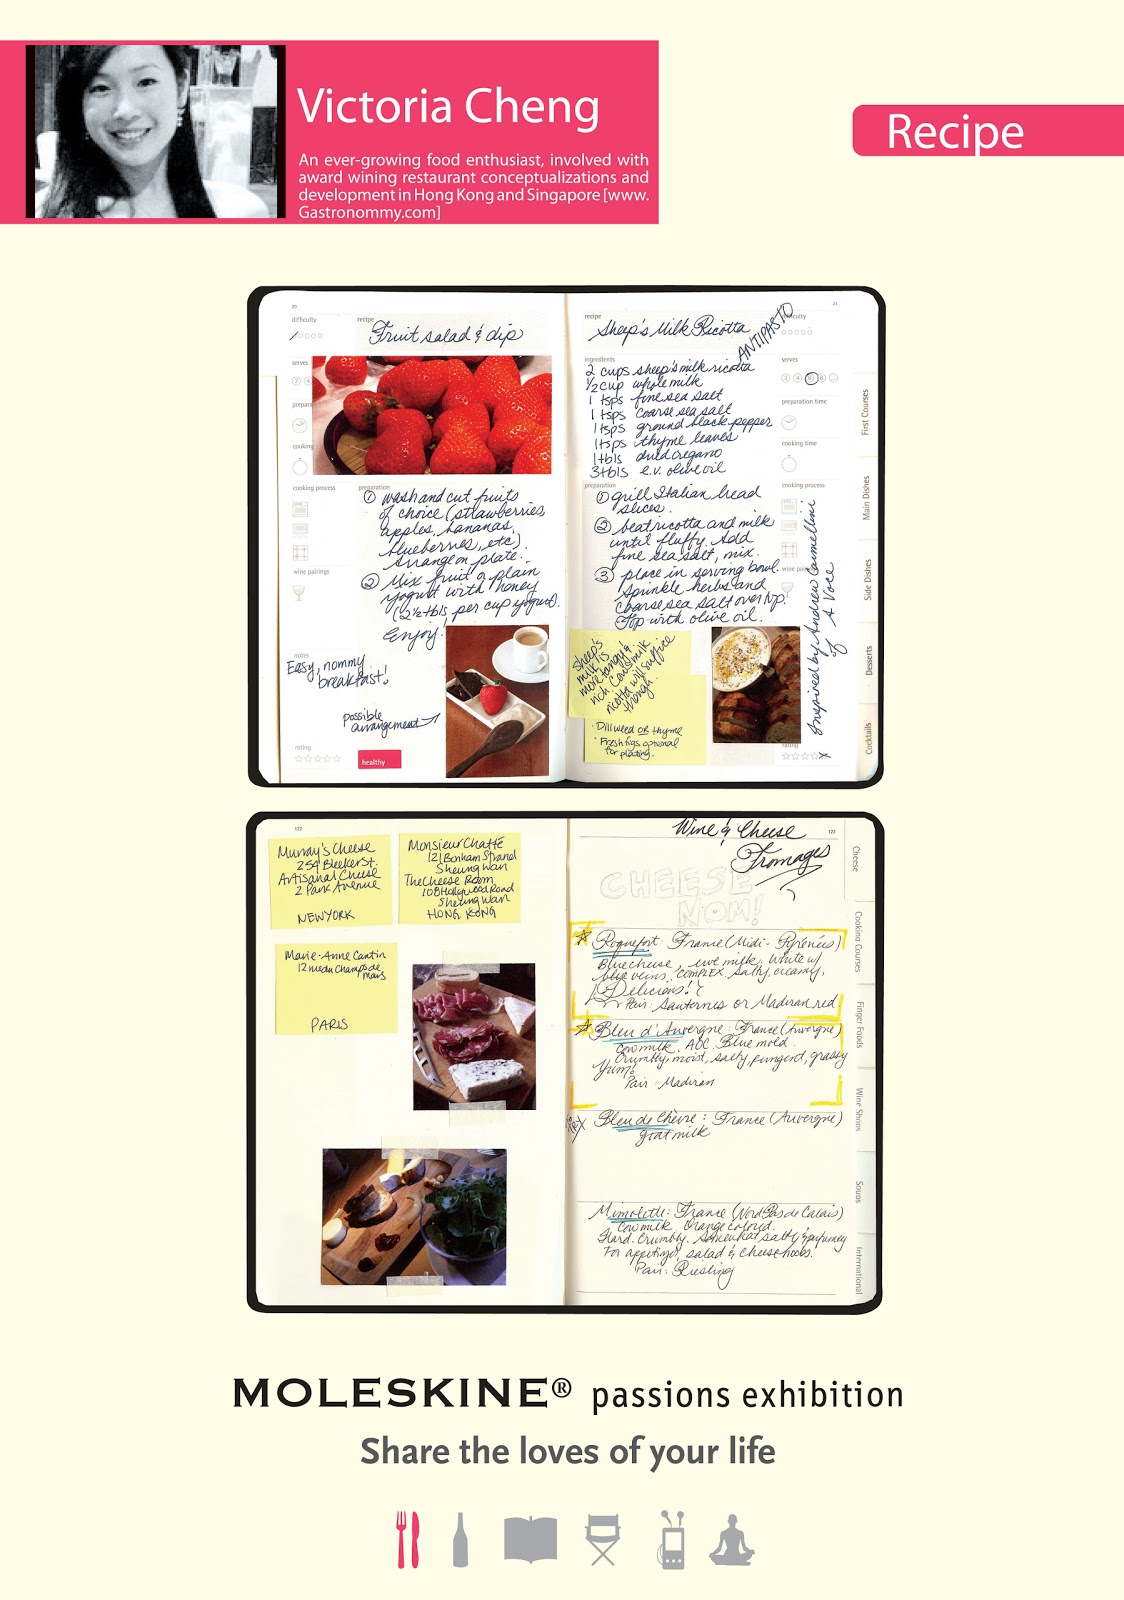 Victoria Cheng
An ever-growing food enthusiast, involved with
award wining restaurant conceptualizations and
development in Hong Kong and Singapore [www.
Gastronommy.com]
Recipe
20
difficulty
recipe
Fruit salad & dip
serves
prepara
cooking
cooking process
preparation
① wash and cut fruits
of choice (strawberries,
apples, bananas,
blueberries, etc)
Arrange on plate.
② Mix fruit or plain
yogurt with honey
(2½ tbls per cup yogurt).
Enjoy!
wine pairings
notes
Easy, nommy
breakfast!
possible
arrangement
rating
healthy
21
recipe
Sheep's Milk Ricotta
ANTIPASTO
difficulty
ingredients
2 cups sheep's milk ricotta
1/2 cup whole milk
1 tsps fine sea salt
1 tsps coarse sea salt
1 tsps ground black pepper
1 tsps thyme leaves
1 tbls dried oregano
3 tbls e.v. olive oil
serves
2 4 6 8 ...
preparation time
cooking time
cooking process
preparation
① grill Italian bread
slices.
② beat ricotta and milk
until fluffy. Add
fine sea salt, mix.
③ place in serving bowl.
Sprinkle herbs and
coarse sea salt over top.
Top with olive oil.
wine pai
Inspired by Andrew Carmellini
of A Voce
Sheep's
milk is
more tangy &
rich. Cow's milk
ricotta will suffice
though.
· Dillweed OR thyme
· Fresh figs optional
for plating.
rating
First Courses
Main Dishes
Side Dishes
Desserts
Cocktails
122
Murray's Cheese
254 Bleeker St.
Artisanal Cheese
2 Park Avenue
NEW YORK
Monsieur Chatté
121 Bonham Strand
Sheung Wan
The Cheese Room
108 Hollywood Road
Sheung Wan
HONG KONG
Marie-Anne Cantin
12 rue du Champs de
Mars
PARIS
123
Wine & Cheese
Fromages
CHEESE
NOM!
Roquefort: France (Midi-Pyrénées)
Blue cheese, ewe milk. White w/
blue veins. COMPLEX. Salty, creamy,
Delicious!
Pair: Sauternes or Madiran red
Bleu d'Auvergne: France (Auvergne)
Cow milk. AOC. Blue mold.
Crumbly, moist, salty, pungent, grassy
Yum!
Pair: Madiran
Bleu de Chèvre: France (Auvergne)
goat milk
Mimolette: France (Nord Pas de Calais)
Cow milk. Orange colored.
Hard. Crumbly. Somewhat salty & perfumey
For appetizer, salad & cheeseboards.
Pair: Riesling
Cheese
Cooking Courses
Finger Foods
Wine Shops
Soups
International
MOLESKINE® passions exhibition
Share the loves of your life